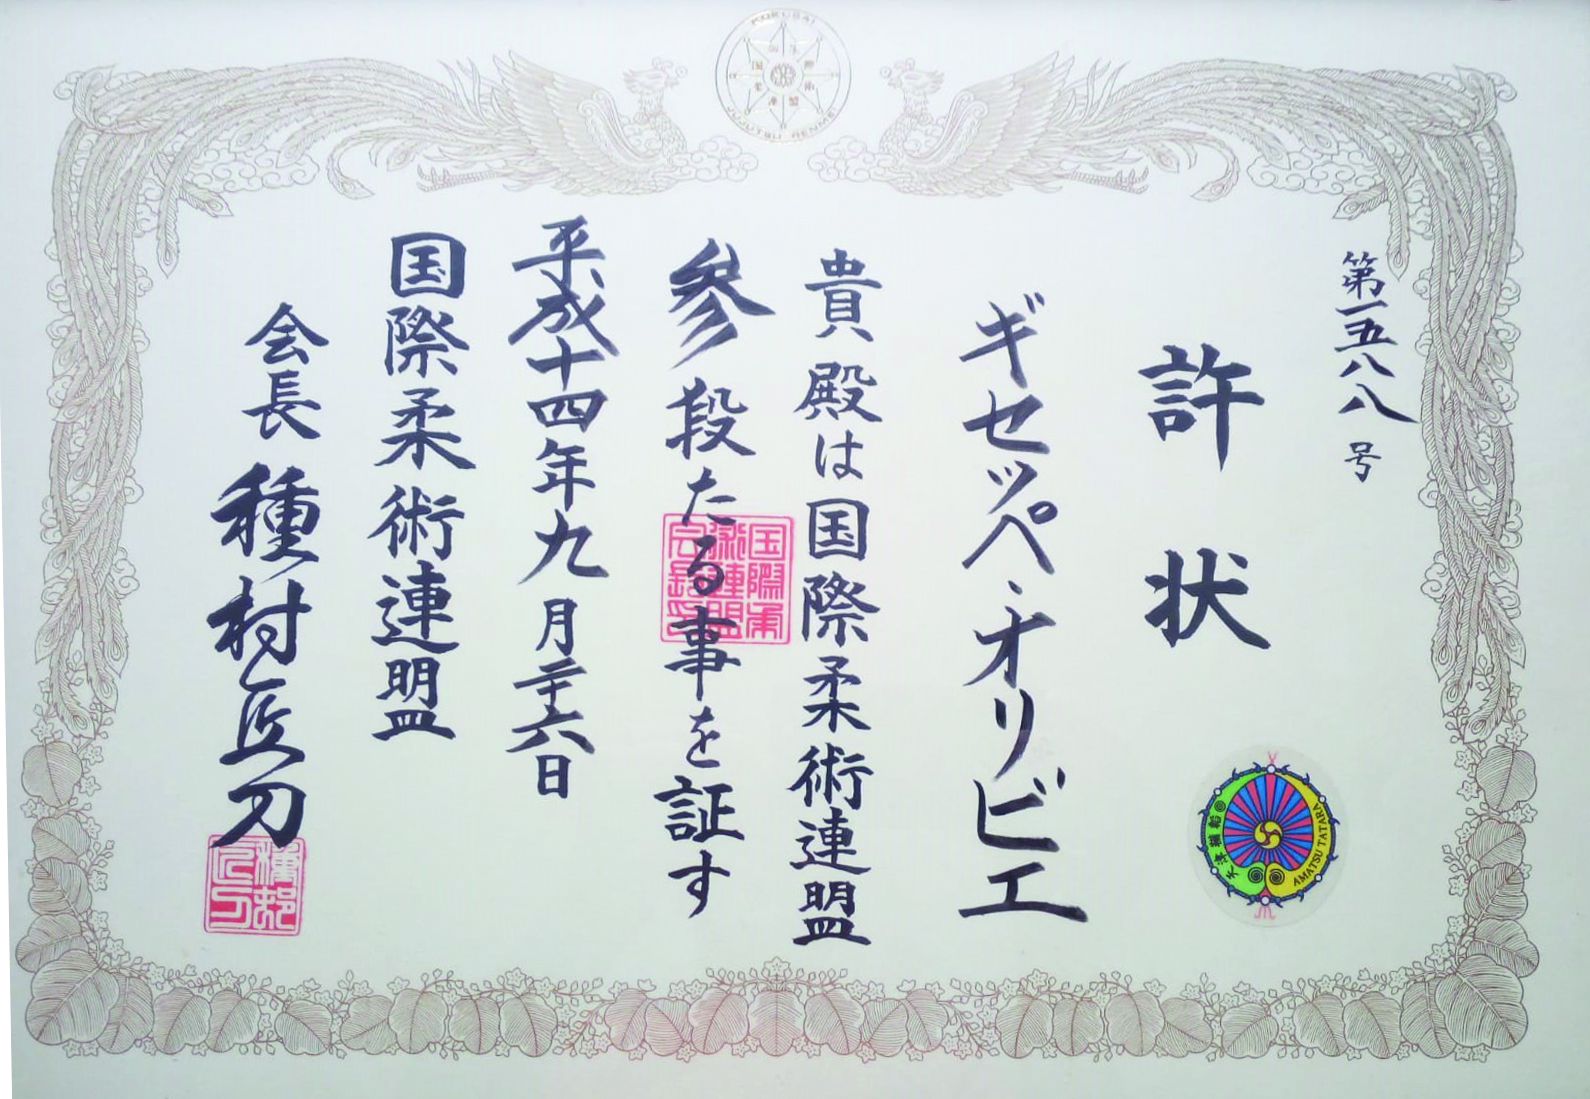 第一五八八号
許状
ギセッペ・オリビエ
貴殿は国際柔術連盟
参段たる事を証す
平成十四年九月二十六日
国際柔術連盟
会長 種村匠刀
KOKUSAI
JUJUTSU RENMEI
国際柔
術連盟
会長印
種村
匠刀
AMATSU TATARA